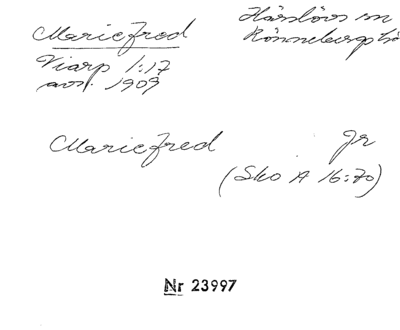 Mariefred
Härslövs sn
Rönnebergs hd
Viarp 1:17
avs. 1909
Mariefred Jr
(Sko A 16:70)
Nr 23997